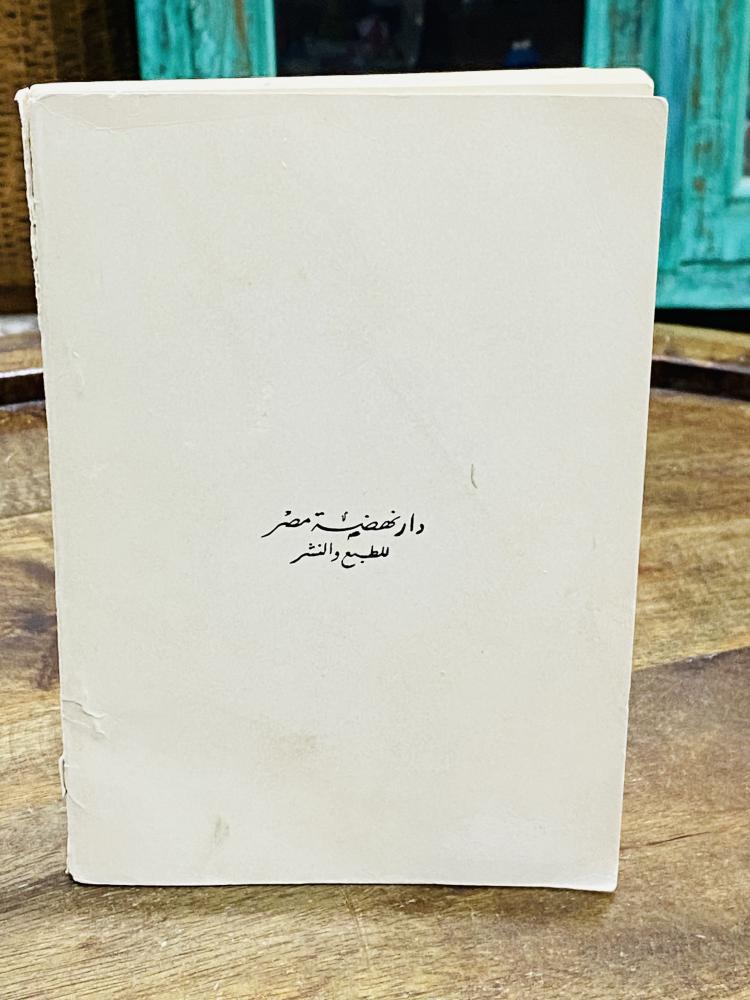 دار نهضة مصر
للطبع والنشر